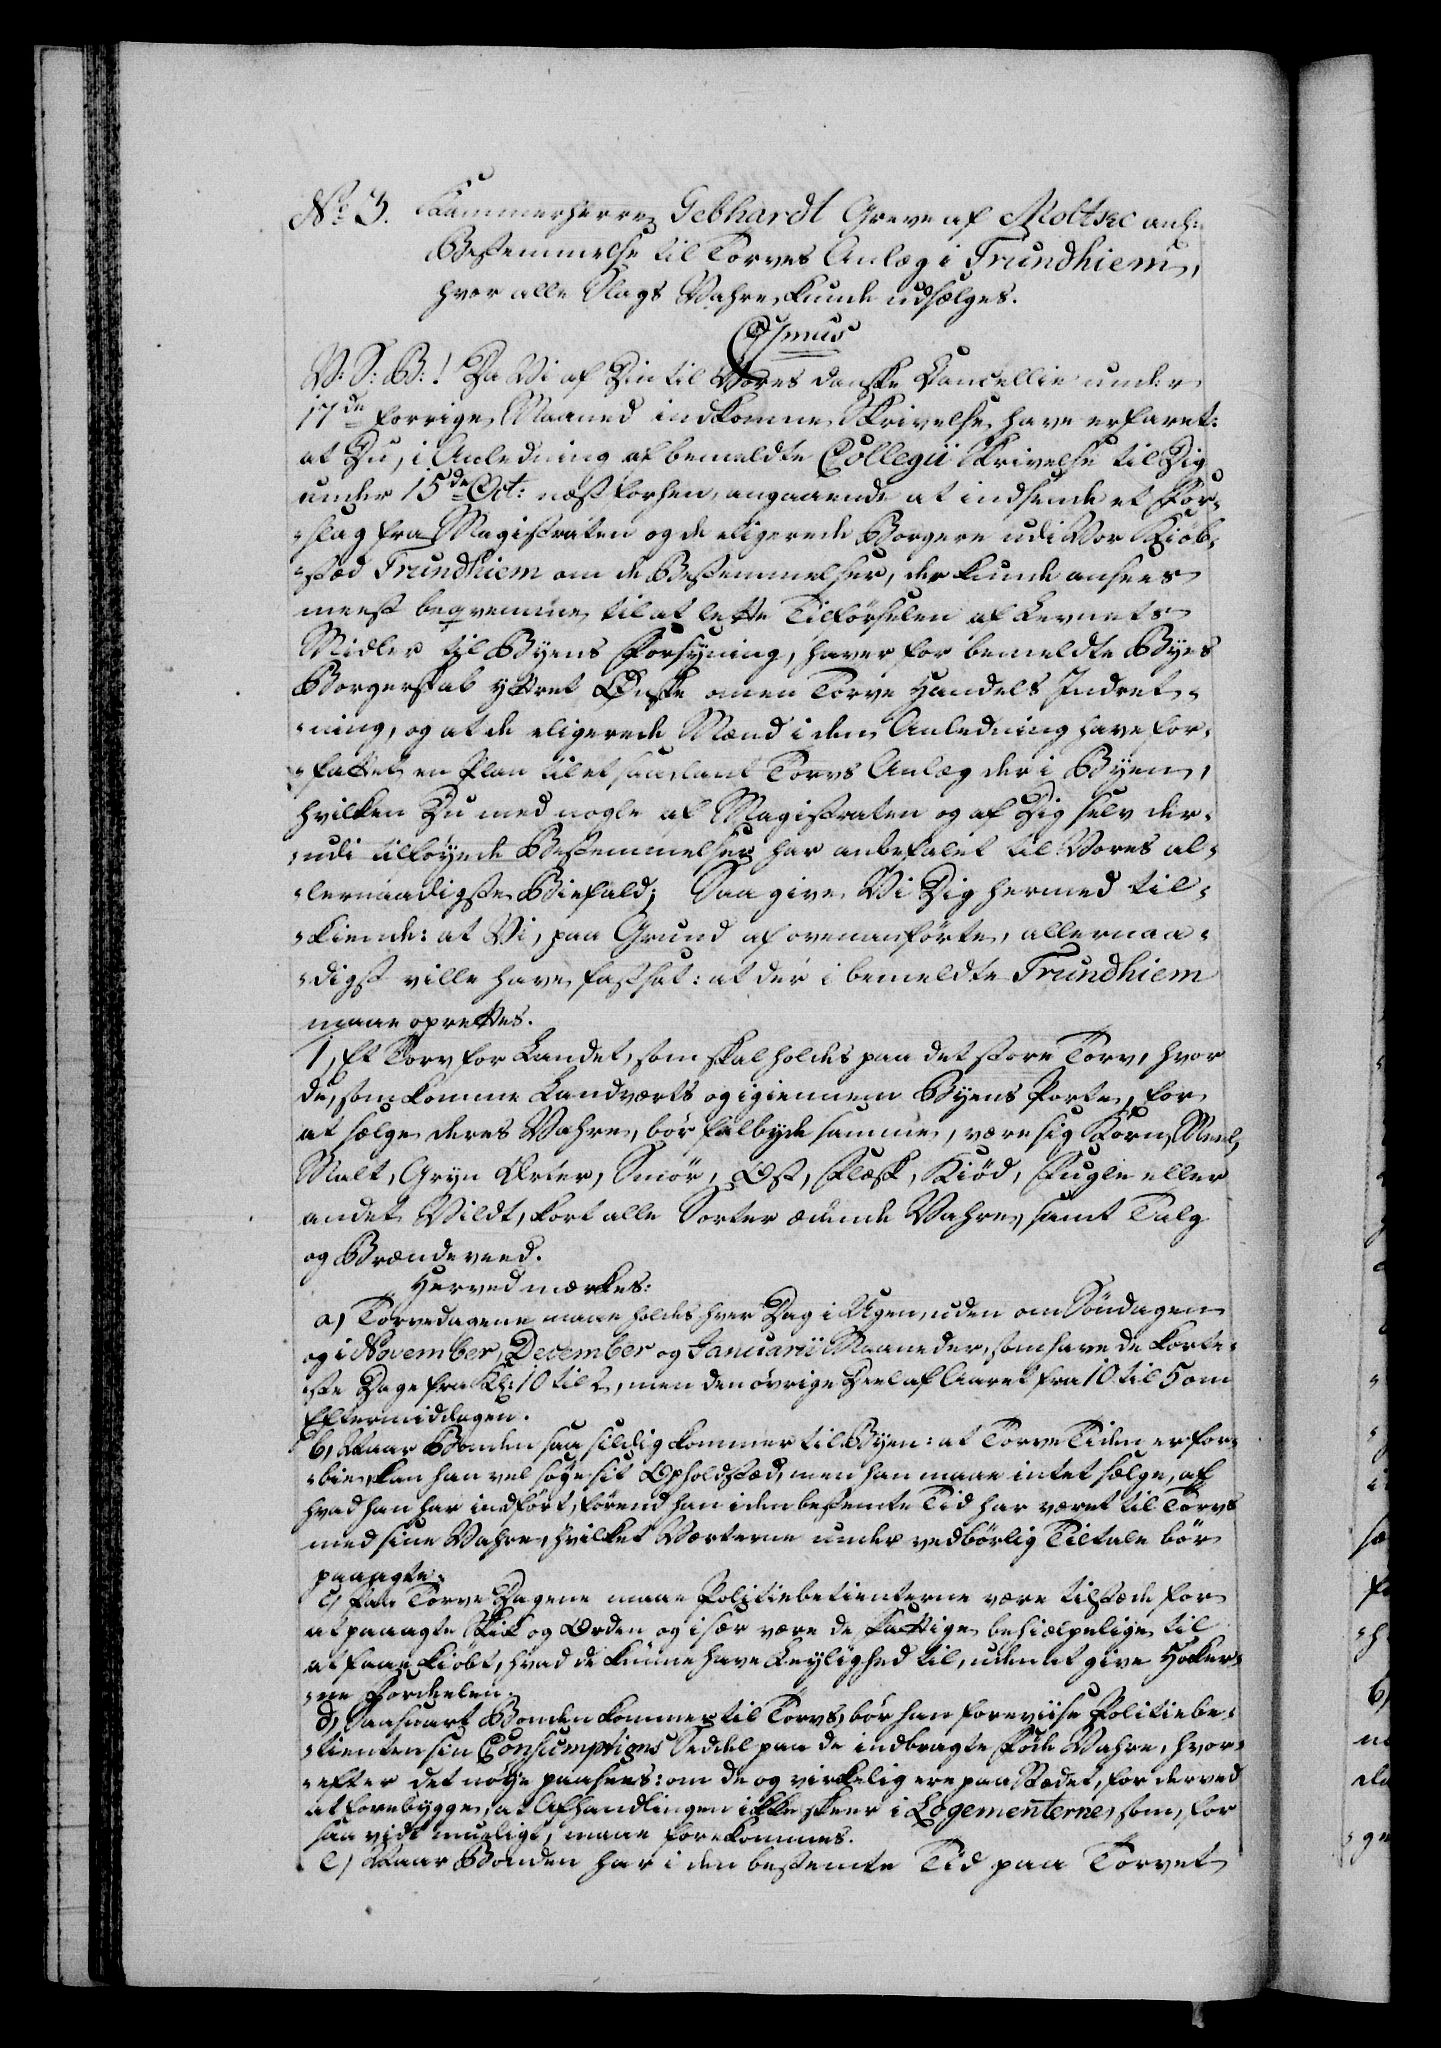 No 3. Kammerherre Gebhardt Greve af Moltke anh:
Bestemmelse til Torves Anlæg i Trundhiem,
hvor alle Slags Vahre kunde udsælges.
C7mus
V: S: G:! Da Vi af Din til Vores danske Cancellie under
17de forrige Maaned indkomne Skrivelse have erfaret:
at Du, i Anledning af bemeldte Collegii Skrivelse til Dig
under 15de Oct: næst forhen, angaaende at indsende et For-
-slag fra Magistraten og de eligerede Borgere udi Vor Kiøb-
-stæd Trundhiem om de Bestemmelser, der kunde ansees
meest beqvemme til at lette Tilførselen af Levnets
Midler til Byens Forsyning, haver for bemeldte Byes
Borgerskab yttret Ønske om en Torve Handels Indret-
-ning, og at de eligerede Mænd i den Anledning have for-
-fattet en Plan til et saadant Torvs Anlæg der i Byen,
hvilken Du med nogle af Magistraten og af Dig selv der-
-udi tilføyede Bestemmelser har anbefalet til Vores al-
-lernaadigste Biefald; Saa give Vi Dig hermed til-
-kiende: at Vi, paa Grund af ovenanførte, allernaa-
-digst ville have fastsat: at der i bemeldte Trundhiem
maae oprettes.
1, Et Torv for Landet, som skal holdes paa det store Torv, hvor
de, som komme Landværts og igiennem Byens Porte, for
at sælge deres Vahre, bør falbyde samme, være sig Korn, Meel,
Malt, Gryn Erter, Smør, Ost, Flæsk, Kiød, Fugle eller
andet Vildt, kort alle Sorter ædende Vahre, samt Talg
og Brændeveed.
Herved mærkes:
a, Torvedagene maae holdes hver Dag i Ugen, uden om Søndagen
og i November, December og Januarii Maaneder, som have de korte-
-ste Dage fra Kl: 10 til 2, men den øvrige Deel af Aaret fra 10 til 5 om
Eftermiddagen.
b, Naar Bonden saa sildig kommer til Byen: at Torve Tiden er for-
-bie, kan han vel søge sit Opholdsted, men han maae intet sælge, af
hvad han har indført, førend han i den bestemte Tid har været til Torvs
med sine Vahre, hvilket Værterne under vedbørlig Tiltale bør
paaagte.
c, Paa Torve Dagene maae Politiebetienterne være tilstæde for
at paaagte Skik og Orden og især være de fattige behielpelige til
at faae kiøbt, hvad de kunne have Leylighed til, uden at give Høker-
-ne Fordeelen.
d, Saasnart Bonden kommer til Torvs, bør han foreviise Politiebe-
-tienten sin Consumptions Seddel paa de indbragte Føde Vahre, hvor-
-efter det nøye paasees: om de og virkelig ere paa Stædet, for derved
at forebygge, at Afhandlingen ikke skeer i Logementerne, som, for
saa vidt mueligt, maae forekommes.
e, Naar Bonden har i den bestemte Tid paa Torvet